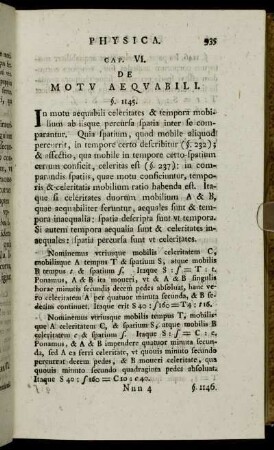 PHYSICA. 935
CAP. VI.
DE
MOTV AEQVABILI.
§. 1145.
In motu aequabili celeritates & tempora mobi-
lium ab iisque percursa spatia inter se com-
parantur. Quia spatium, quod mobile aliquod
percurrit, in tempore certo describitur (§. 232);
& affectio, qua mobile in tempore certo spatium
certum conficit, celeritas est (§. 237): in com-
parandis spatiis, quae motu conficiuntur, tempo-
ris & celeritatis mobilium ratio habenda est. Ita-
que si celeritates duorum mobilium A & B,
quae aequabiliter feruntur, aequales sunt &
tempora inaequalia: spatia descripta sunt vt tempora.
Si autem tempora aequalia sunt & celeritates in-
aequales: spatia percursa sunt vt celeritates.
Nominemus vtriusque mobilis celeritatem C,
mobilisque A tempus T & spatium S, atque mobilis
B tempus t & spatium ſ. Itaque S : ſ = T : t.
Ponamus, A & B ita moueri, vt A & B singulis
horae minutis secundis decem pedes absoluat, hanc ve-
ro celeritatem A per quatuor minuta secunda, & B per
sedecim continuet. Itaque erit S 40 : ſ160 = T4 : t16.
Nominemus vtriusque mobilis tempus T, mobilis-
que A celeritatem C, & spatium S, atque mobilis B
celeritatem c & spatium ſ. Itaque S : ſ = C : c.
Ponamus, & A & B impendere quatuor minuta secun-
da, sed A ea ferri celeritate, vt quouis minuto secundo
percurrat decem pedes, & B moueri celeritate, qua
quouis minuto secundo quadraginta pedes absoluat.
Itaque S 40 : ſ160 = C10 : c40.
Nnn 4 §. 1146.